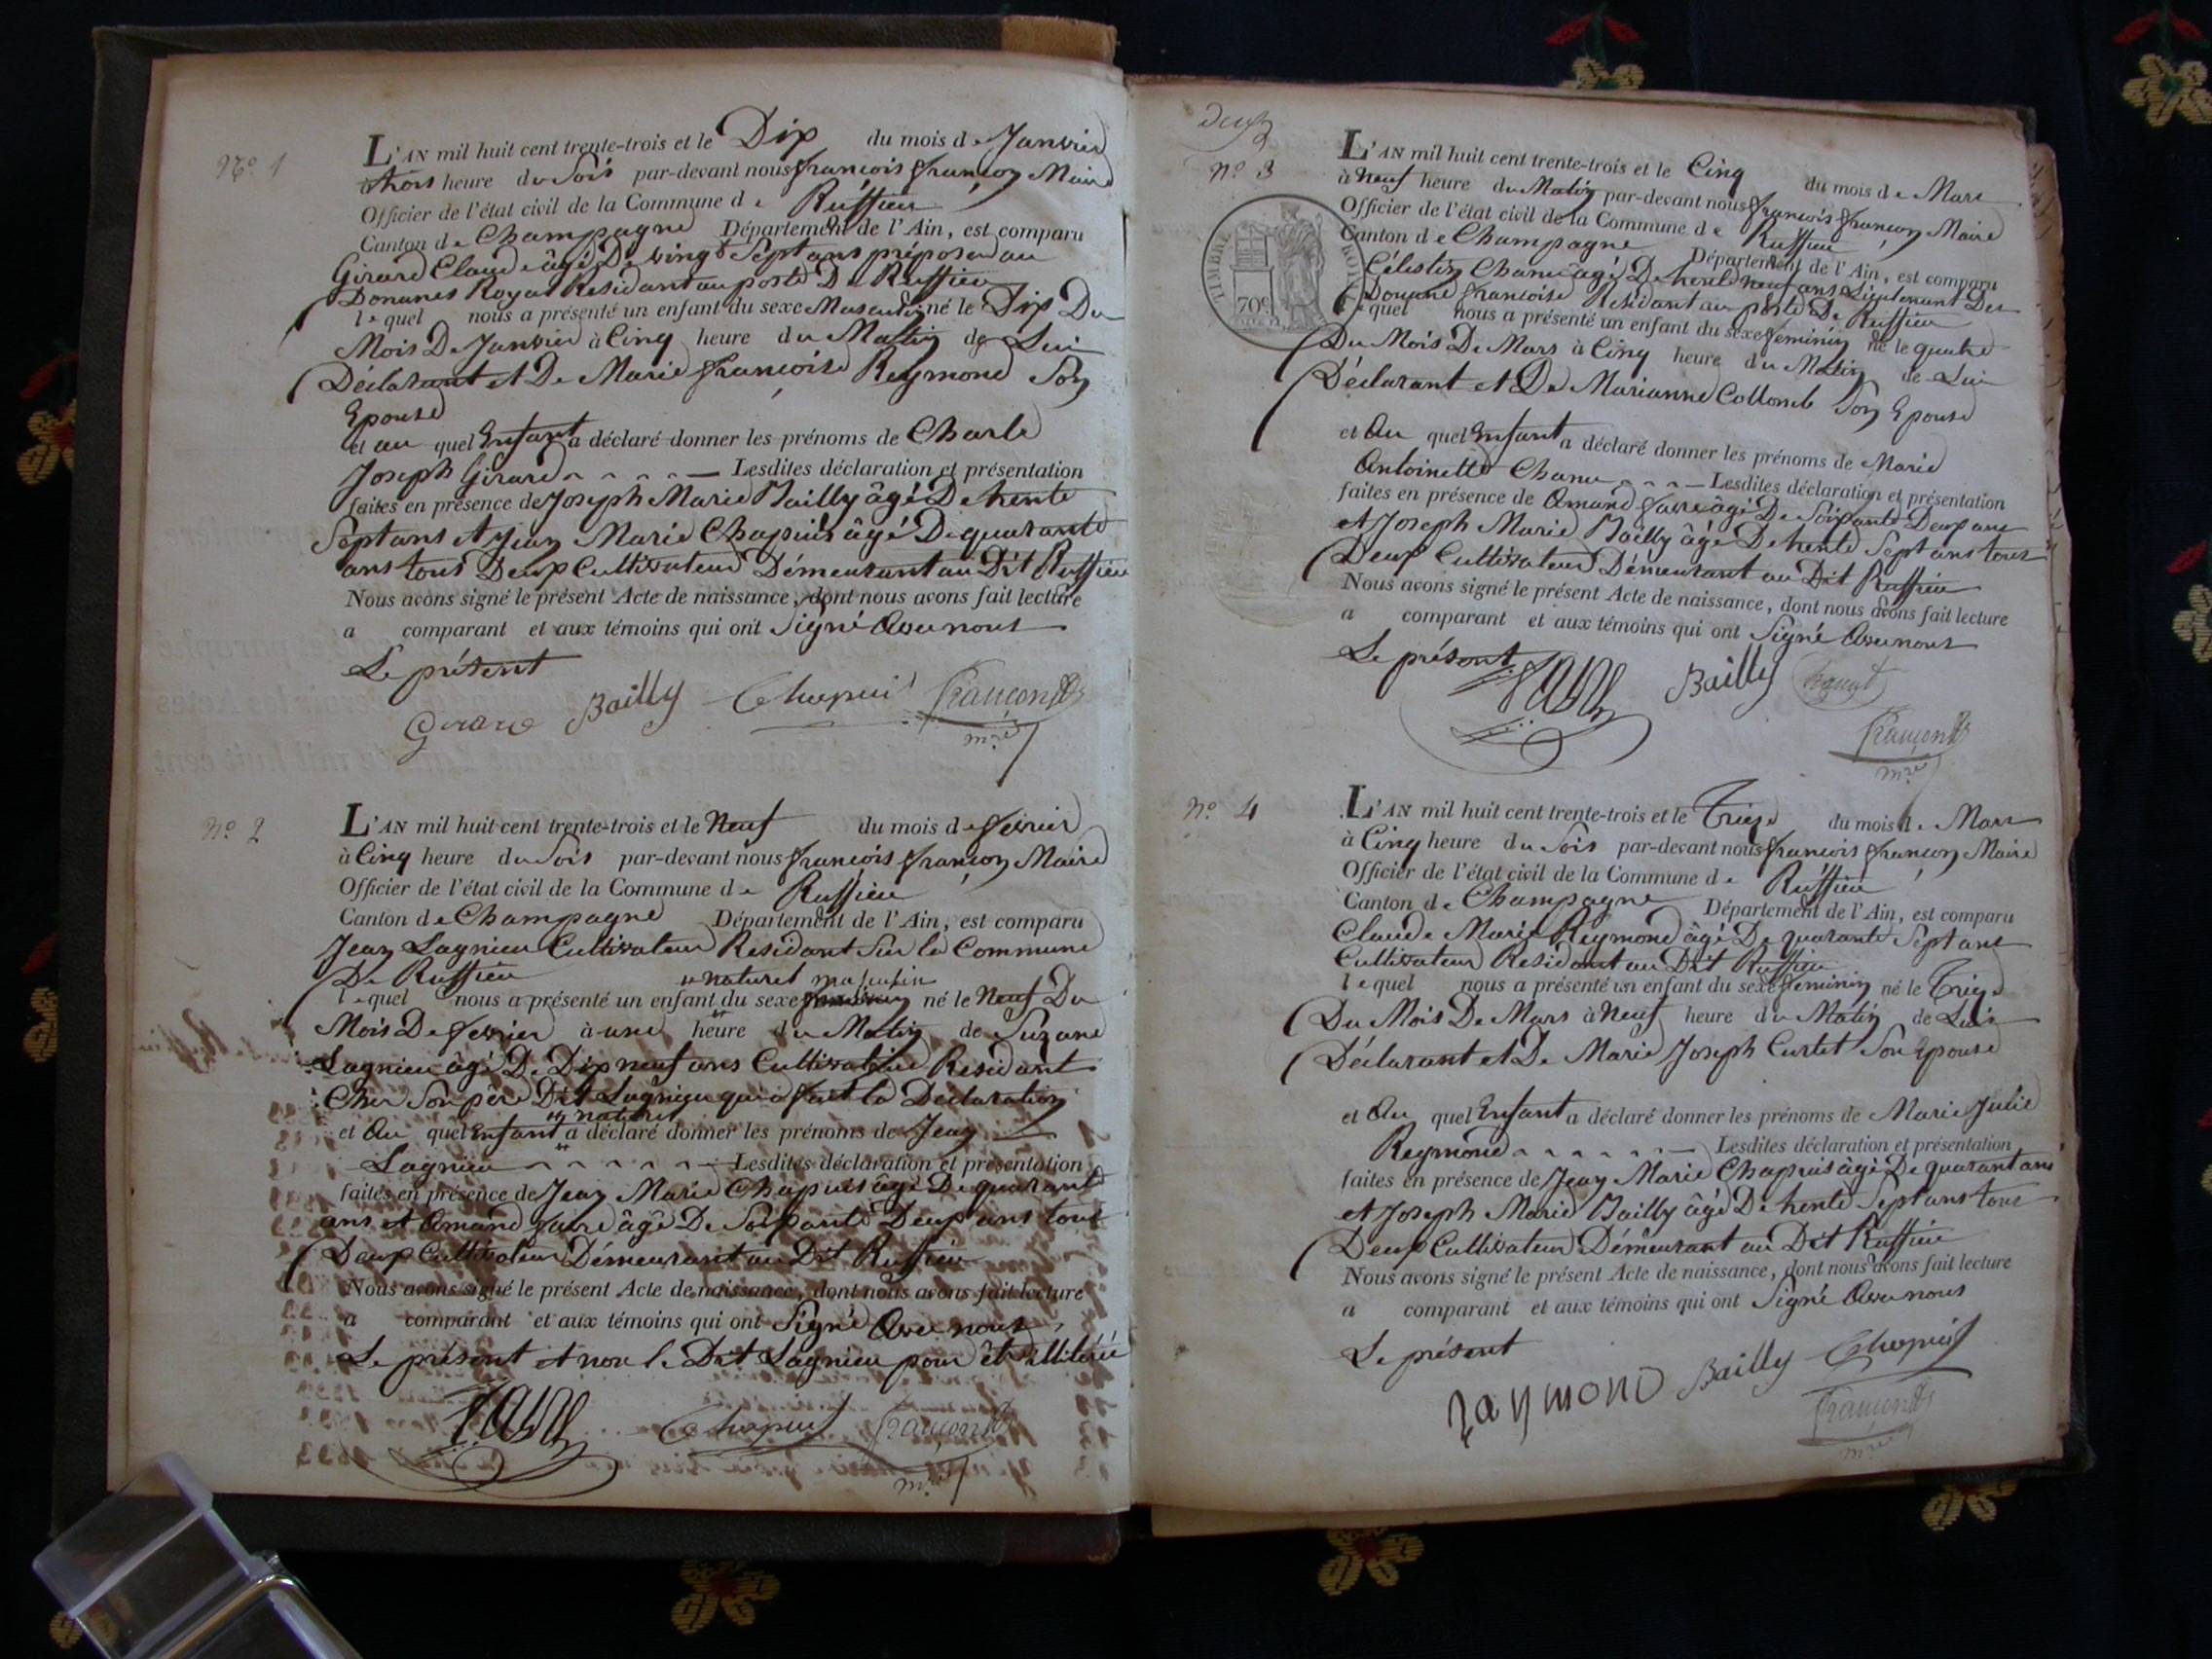 N.° 1
L'AN mil huit cent trente-trois et le Dix du mois de Janvier
à trois heure du Soir par-devant nous françois françon Maire
Officier de l'état civil de la Commune de Ruffieu
Canton de Champagne Département de l'Ain, est comparu
Girard Claude âgé De vingt Sept ans préposé au
Douanes Royal Residant au poste De Ruffieu
lequel nous a présenté un enfant du sexe Masculin né le Dix Du
Mois De Janvier à Cinq heure du Matin de Lui
Déclarant et De Marie françoise Reymond Son
Epouse
et au quel Enfant a déclaré donner les prénoms de Charle
Joseph Girard Lesdites déclaration et présentation
faites en présence de Joseph Marie Bailly âgé De trente
Sept ans et jean Marie Chapuis âgé De quarante
ans tous Deux Cultivateur Démeurant au Dit Ruffieu
Nous avons signé le présent Acte de naissance, dont nous avons fait lecture
a comparant et aux témoins qui ont Signé Avec nous
Le présent
Girard Bailly Chapuis françon
mre
N.° 2
L'AN mil huit cent trente-trois et le Neuf du mois de fevrier
à Cinq heure du Soir par-devant nous françois françon Maire
Officier de l'état civil de la Commune de Ruffieu
Canton de Champagne Département de l'Ain, est comparu
Jean Lagnieu Cultivateur Residant Sur la Commune
De Ruffieu naturel masculin
lequel nous a présenté un enfant du sexe né le Neuf Du
Mois De fevrier à une heure du Matin de Suzane
Lagnieu âgé De Dix neuf ans Cultivatrice Residant
Cher Son père Dit Lagnieu qui a fait la Déclaration
naturel
et Au quel Enfant a déclaré donner les prénoms de Jean
Lagnieu Lesdites déclaration et présentation
faites en présence de Jean Marie Chapuis âgé De quarante
ans et Amand favre âgé De Soixante Deux ans tous
Deux Cultivateur Démeurant au Dit Ruffieu
Nous avons signé le présent Acte de naissance, dont nous avons fait lecture
a comparant et aux témoins qui ont Signé Avec nous
Le présent et non le Dit Lagnieu pour être illiteré
favre Chapuis françon
mre
Deux
N.° 3
TIMBRE ROYAL
70c
L'AN mil huit cent trente-trois et le Cinq du mois de Mars
à Neuf heure du Matin par-devant nous françois françon Maire
Officier de l'état civil de la Commune de Ruffieu
Canton de Champagne Département de l'Ain, est comparu
Célestin âgé De trente neuf ans Lieutenant Des
Douane francoise Residant au poste De Ruffieu
lequel nous a présenté un enfant du sexe feminin né le quatre
Du Mois De Mars à Cinq heure du Matin de Lui
Déclarant et De Marianne Collomb Son Epouse
et Au quel Enfant a déclaré donner les prénoms de Marie
Antoinette Lesdites déclaration et présentation
faites en présence de Amand favre âgé De Soixante Deux ans
et Joseph Marie Bailly âgé De trente Sept ans tous
Deux Cultivateur Démeurant au Dit Ruffieu
Nous avons signé le présent Acte de naissance, dont nous avons fait lecture
a comparant et aux témoins qui ont Signé Avec nous
Le présent
favre Bailly
françon
mre
N.° 4
L'AN mil huit cent trente-trois et le Treize du mois de Mars
à Cinq heure du Soir par-devant nous francois françon Maire
Officier de l'état civil de la Commune de Ruffieu
Canton de Champagne Département de l'Ain, est comparu
Claude Marie Reymond âgé De quarante Sept ans
Cultivateur Residant au Dit Ruffieu
lequel nous a présenté un enfant du sexe feminin né le Treize
Du Mois De Mars à Neuf heure du Matin de Lui
Déclarant et De Marie Joseph Curtet Son Epouse
et Au quel Enfant a déclaré donner les prénoms de Marie Julie
Reymond Lesdites déclaration et présentation
faites en présence de Jean Marie Chapuis âgé De quarant ans
et Joseph Marie Bailly âgé De trente Sept ans tous
Deux Cultivateur Démeurant au Dit Ruffieu
Nous avons signé le présent Acte de naissance, dont nous avons fait lecture
a comparant et aux témoins qui ont Signé Avec nous
Le présent
Raymond Bailly Chapuis
françon
mre